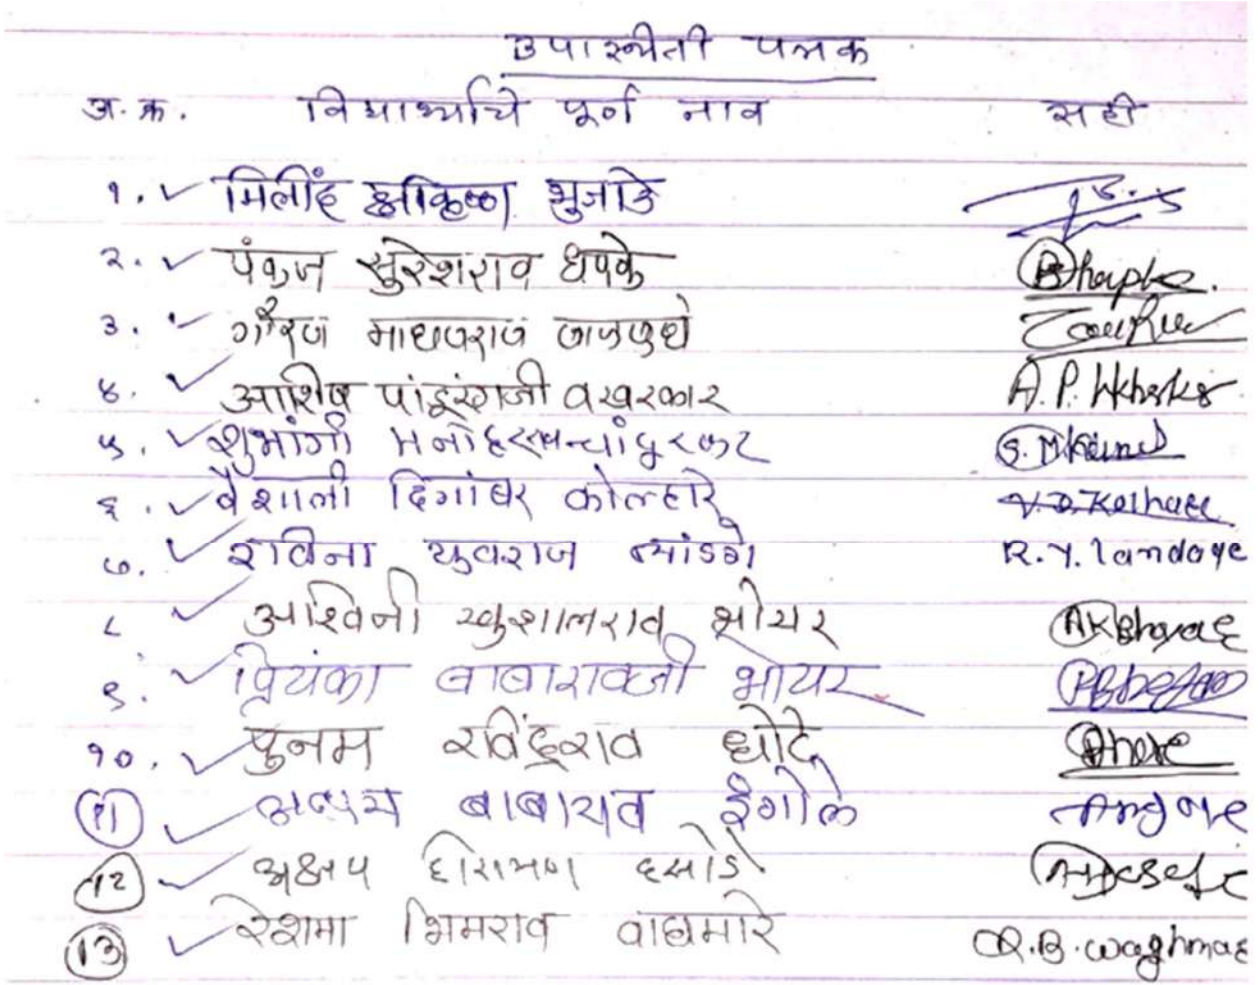 उपास्थीती पत्रक
अ.क्र. विद्यार्थ्याचे पूर्ण नाव सही
१. मिलींद भुजाडे
२. पंकज सुरेशराव धपके Bhapke.
३. गौरव माधवराव
४. आशिष पांडूरंगजी वखरकार A.P.
५. शुभांगी मनोहरराव चांदुरकर S.M.
६. वैशाली दिगांबर कोल्हारे V.D. Kolhare
७. राविना युवराज लांडगे R.Y. landage
८ अश्विनी खुशालराव भोयर AKBhoyar
९. प्रियंका बाबारावजी भोयर
१०. पुनम रविंद्रराव धोटे
11 बाबाराव इंगोले
12 अक्षय हीरामण
13 रेशमा भिमराव वाघमारे R.B. waghmare